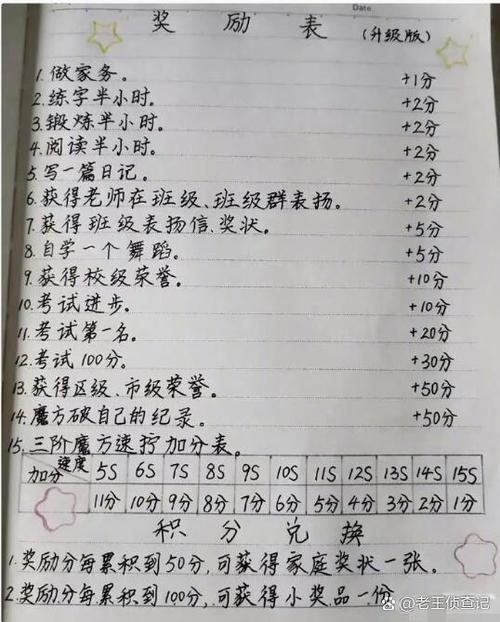 Date
奖 励 表 (升级版)
1. 做家务。 +1分
2. 练字半小时。 +2分
3. 锻炼半小时。 +2分
4. 阅读半小时。 +2分
5. 写一篇日记。 +2分
6. 获得老师在班级、班级群表扬。 +2分
7. 获得班级表扬信、奖状。 +5分
8. 自学一个舞蹈。 +5分
9. 获得校级荣誉。 +10分
10. 考试进步。 +10分
11. 考试第一名。 +20分
12. 考试100分。 +30分
13. 获得区级、市级荣誉。 +50分
14. 魔方破自己的纪录。 +50分
15. 三阶魔方速拧加分表。
速度 5S 6S 7S 8S 9S 10S 11S 12S 13S 14S 15S
加分 11分 10分 9分 8分 7分 6分 5分 4分 3分 2分 1分
积 分 兑 换
1. 奖励分每累积到50分,可获得家庭奖状一张。
2. 奖励分每累积到100分,可获得小奖品一份
老王侦查记